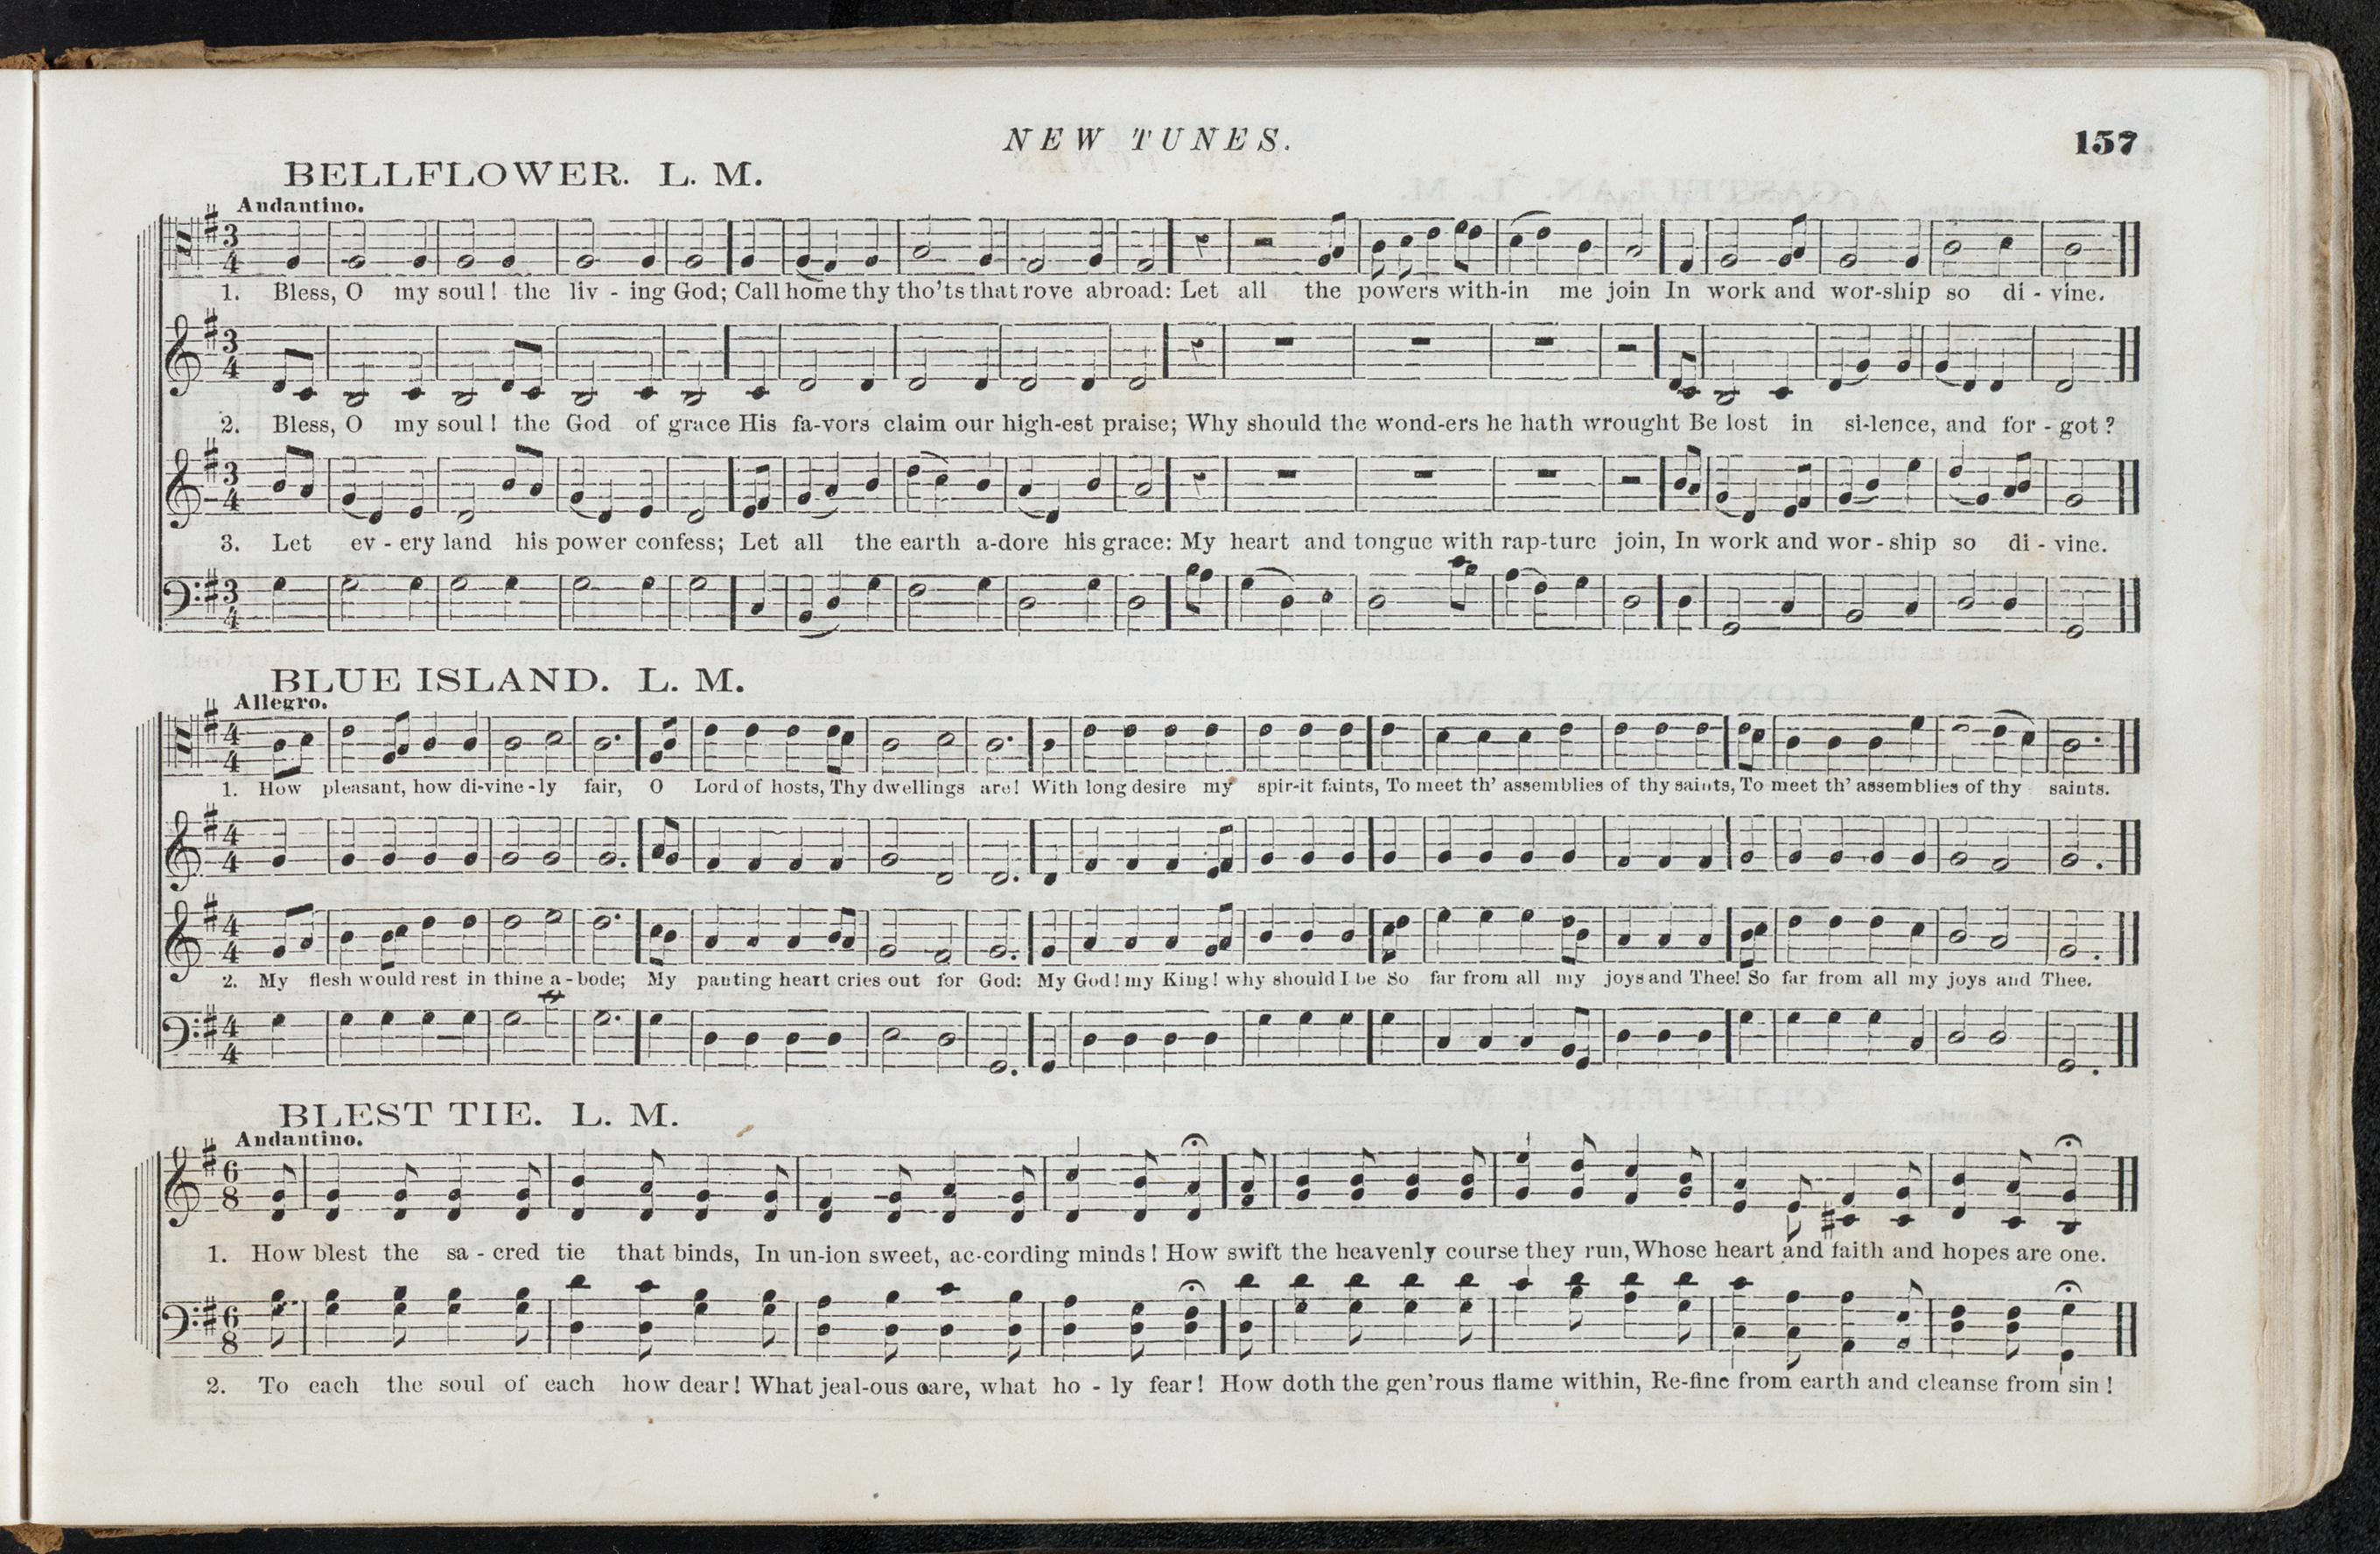 NEW TUNES.
157
BELLFLOWER. L. M.
Andantino.
3 4
1. Bless, O my soul! the liv - ing God; Call home thy tho'ts that rove abroad: Let all the powers with-in me join In work and wor-ship so di - vine.
3 4
2. Bless, O my soul! the God of grace His fa-vors claim our high-est praise; Why should the wond-ers he hath wrought Be lost in si-lence, and for - got?
3 4
3. Let ev - ery land his power confess; Let all the earth a-dore his grace: My heart and tongue with rap-ture join, In work and wor - ship so di - vine.
3 4
BLUE ISLAND. L. M.
Allegro.
4 4
1. How pleasant, how di-vine - ly fair, O Lord of hosts, Thy dwellings are! With long desire my spir-it faints, To meet th' assemblies of thy saints, To meet th' assemblies of thy saints.
4 4
4 4
2. My flesh would rest in thine a - bode; My panting heart cries out for God: My God! my King! why should I be So far from all my joys and Thee! So far from all my joys and Thee.
4 4
BLEST TIE. L. M.
Andantino.
6 8
1. How blest the sa - cred tie that binds, In un-ion sweet, ac-cording minds! How swift the heavenly course they run, Whose heart and faith and hopes are one.
6 8
2. To each the soul of each how dear! What jeal-ous care, what ho - ly fear! How doth the gen'rous flame within, Re-fine from earth and cleanse from sin!